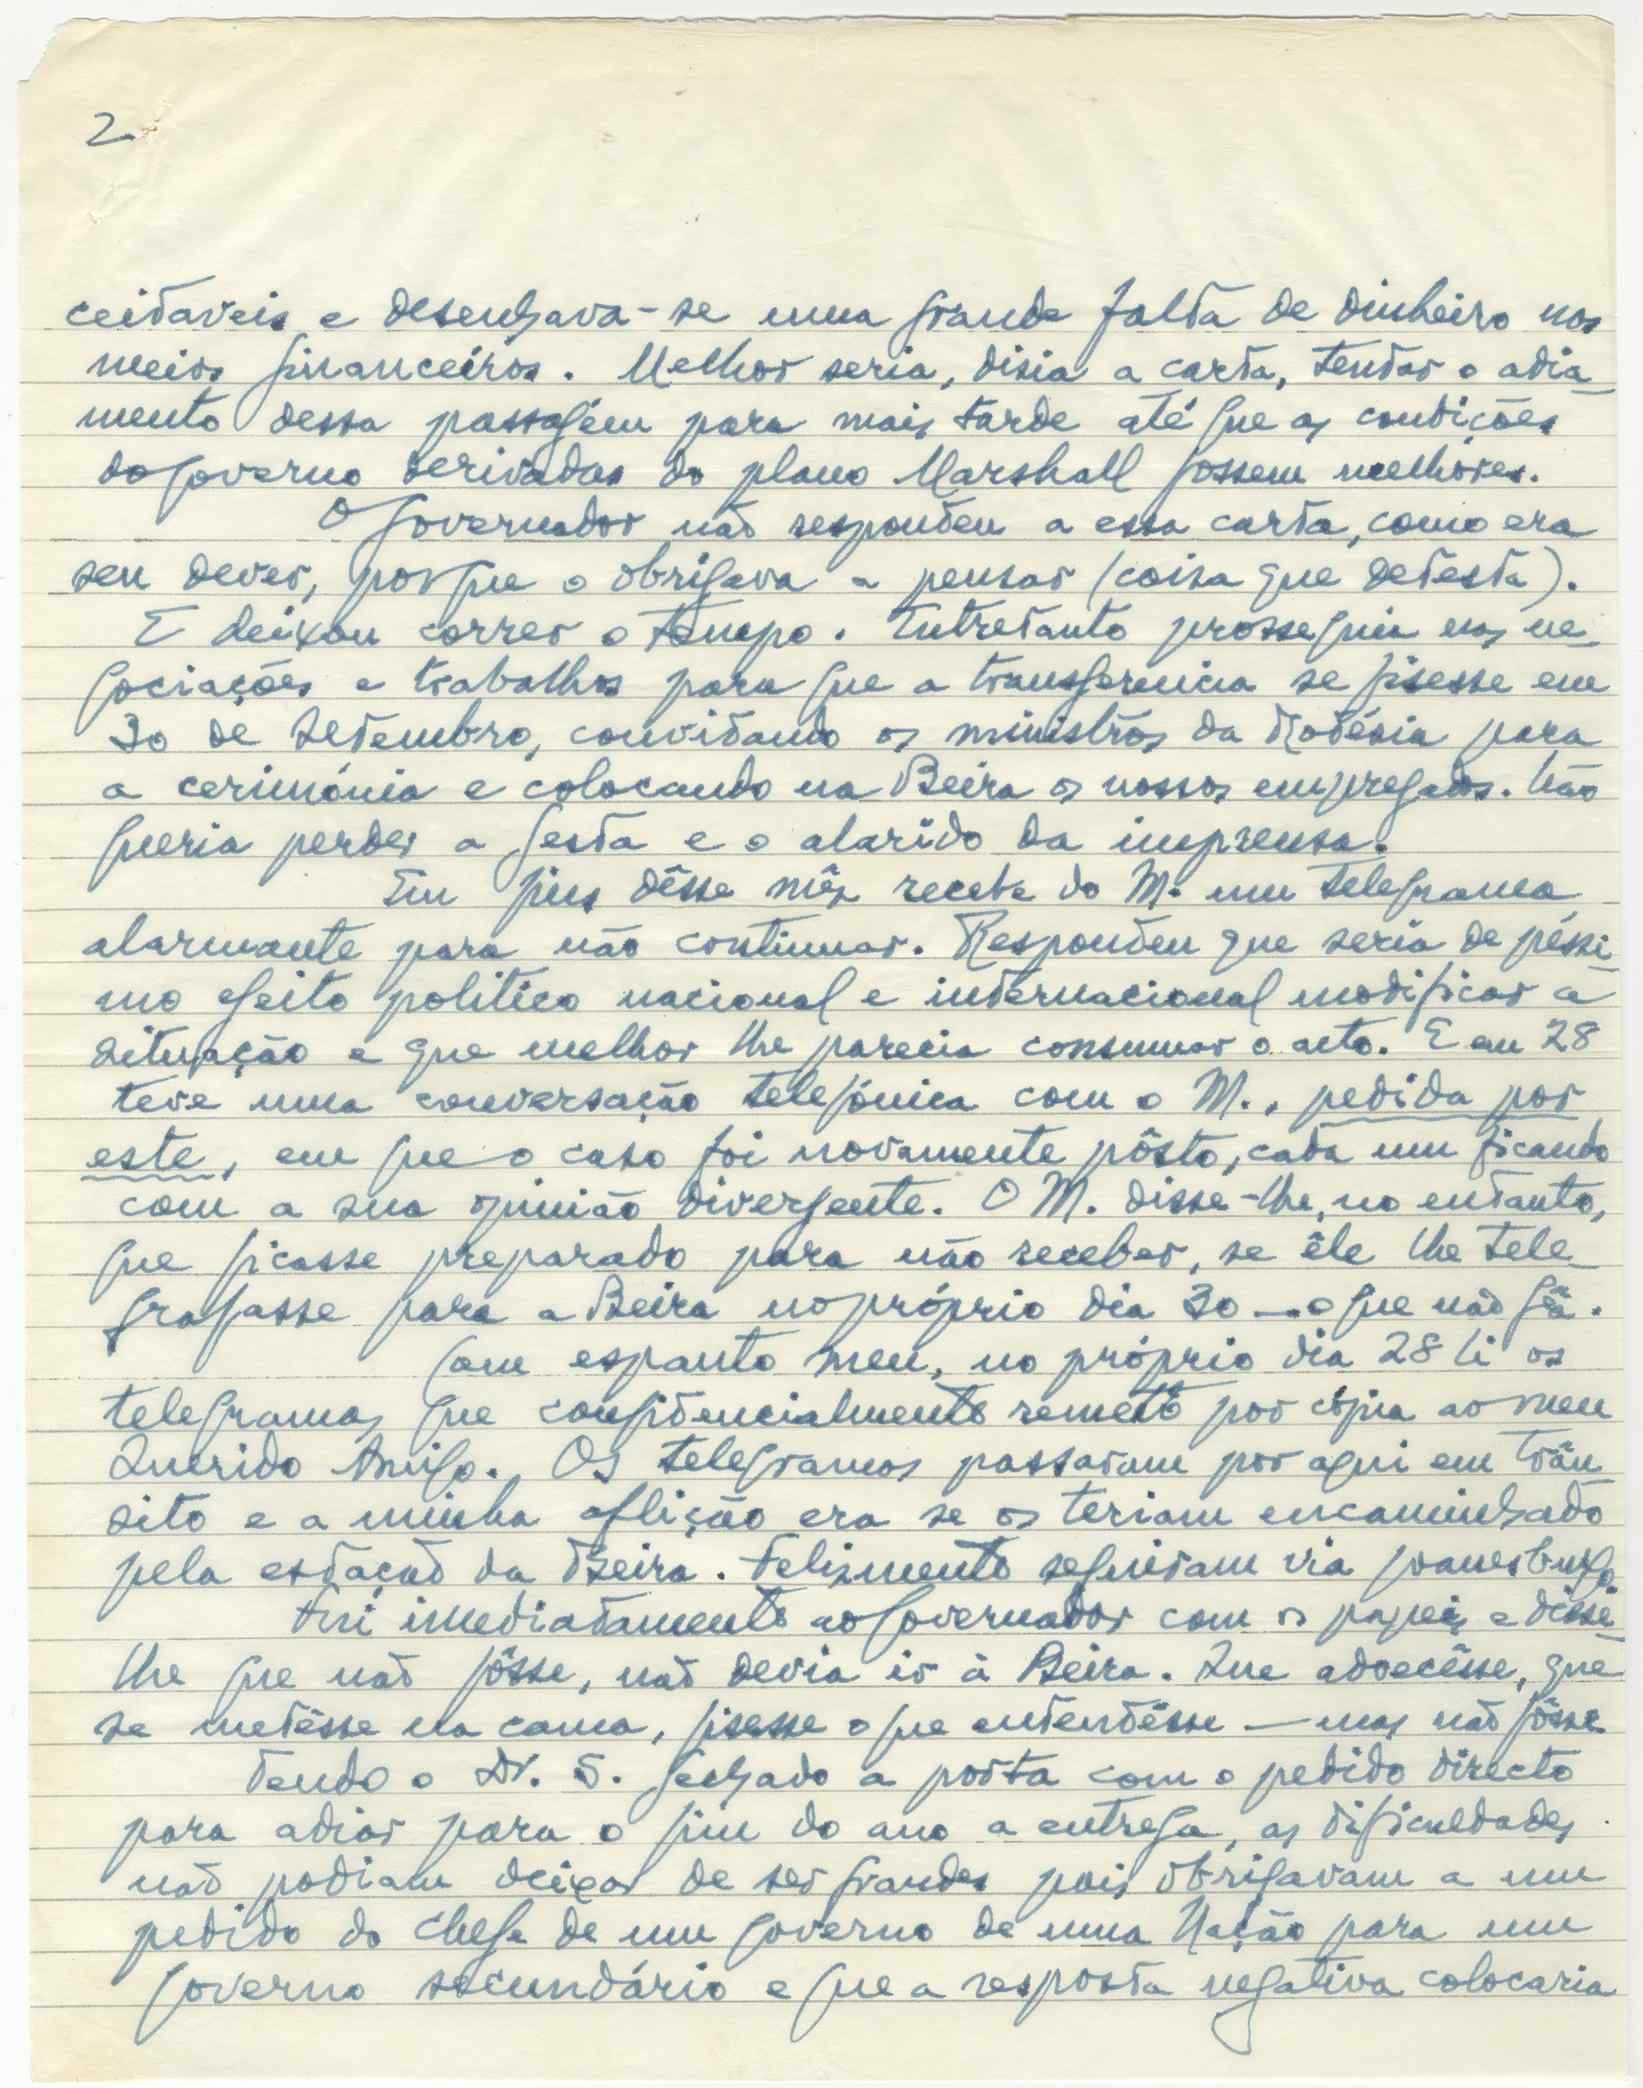 2
ceitaveis e desenhava-se uma grande falta de dinheiro nos
meios financeiros. Melhor seria, disia a carta, tentar o adia-
mento dessa passagém para mais tarde até que as condições
do governo derivadas do plano Marshall fossem melhores.
O Governador não respondeu a essa carta, como era
seu dever, porque o obrigava a pensar (coisa que detesta).
E deixou correr o tempo. Entretanto prosseguiu nas ne-
gociações e trabalhos para que a transferencia se fisesse em
30 de Setembro, convidando os ministros da Rodésia para
a cerimónia e colocando na Beira os nossos empregados. Não
queria perder a festa e o alarido da imprensa.
Em fins dêsse mês recebe do M. um telegrama
alarmante para não continuar. Respondeu que seria de péssi-
mo efeito politico nacional e internacional modificar a
situação e que melhor lhe parecia consumar o acto. E em 28
teve uma conversação telefónica com o M., pedida por
este, em que o caso foi novamente pôsto, cada um ficando
com a sua opinião divergente. O M. disse-lhe, no entanto,
que ficasse preparado para não receber, se êle lhe tele-
grafasse para a Beira no próprio dia 30 — o que não fêz.
Com espanto meu, no próprio dia 28 li os
telegramas que confidencialmente remeto por cópia ao meu
Querido Amigo. Os telegramas passaram por aqui em trân
sito e a minha aflição era se os teriam encaminhado
pela estação da Beira. Felizmente seguiram via Joanesburgo
Fui imediatamente ao Governador com os papeis e disse-
lhe que não fôsse, não devia ir à Beira. Que adoecêsse, que
se metêsse na cama, fisesse o que entendêsse — mas não fôsse
Tendo o Dr. S. fechado a porta com o pedido directo
para adiar para o fim do ano a entrega, as dificuldades
não podiam deixar de ser grandes pois obrigavam a um
pedido do chefe de um governo de uma Nação para um
governo secundário e que a resposta negativa colocaria